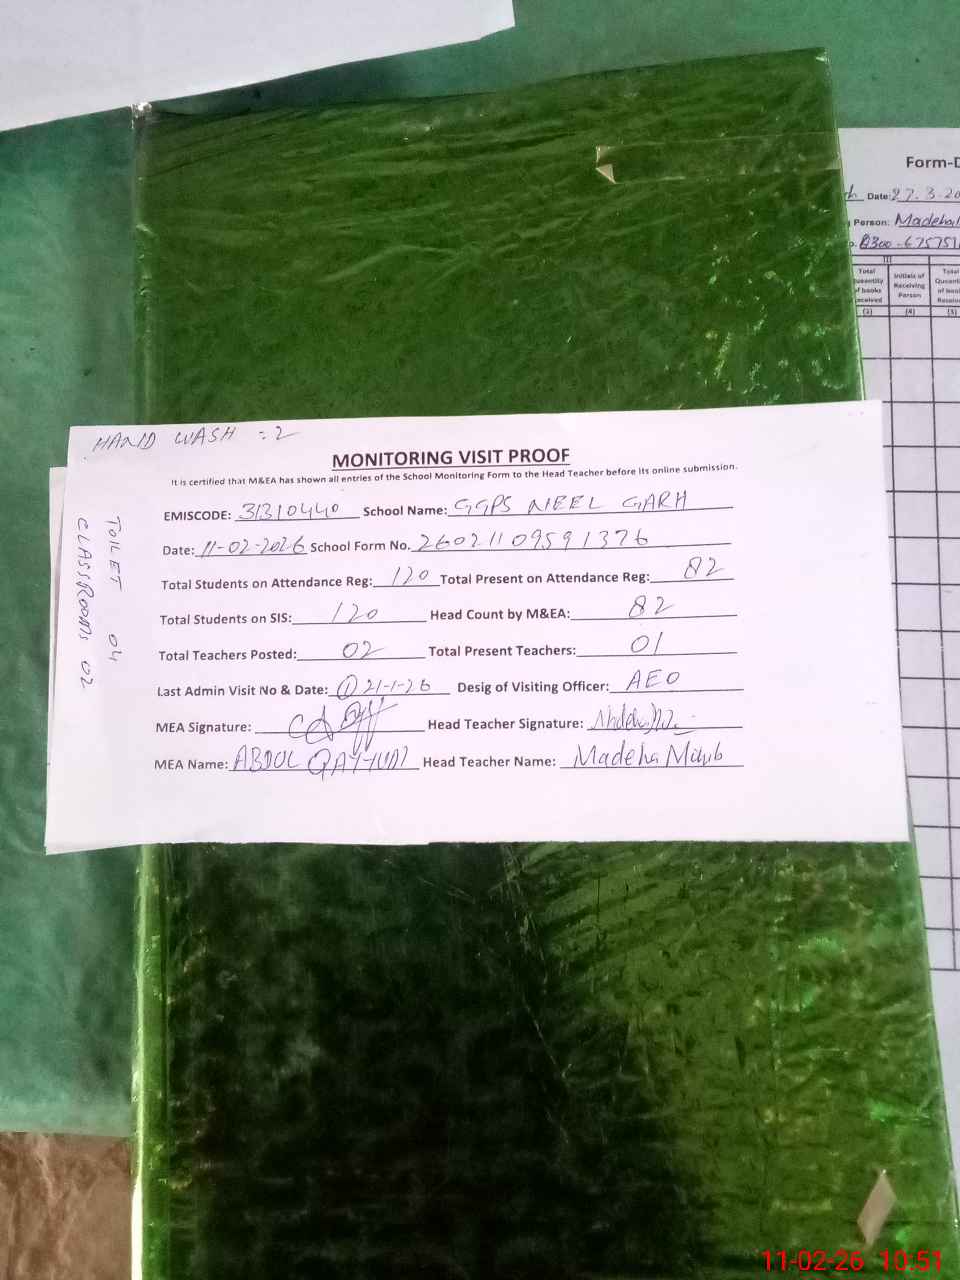 HAND WASH :2
MONITORING VISIT PROOF
It is certified that M&EA has shown all entries of the School Monitoring Form to the Head Teacher before its online submission.
EMISCODE: 31310440 School Name: GGPS NEEL GARH
Date: 11-02-2026 School Form No. 26021109591376
Total Students on Attendance Reg: 120 Total Present on Attendance Reg: 82
Total Students on SIS: 120 Head Count by M&EA: 82
Total Teachers Posted: 02 Total Present Teachers: 01
Last Admin Visit No & Date: ① 21-1-26 Desig of Visiting Officer: AEO
MEA Signature: Head Teacher Signature:
MEA Name: ABDUL QAYYUM Head Teacher Name: Madeha
TOILET 04
CLASSROOMS 02
Form-D
Date: 27.3.20
Person: Madeha
0300-675751
III
Total Quantity of books received
Initials of Receiving Person
Total
(2) (4) (3)
11-02-26 10:51